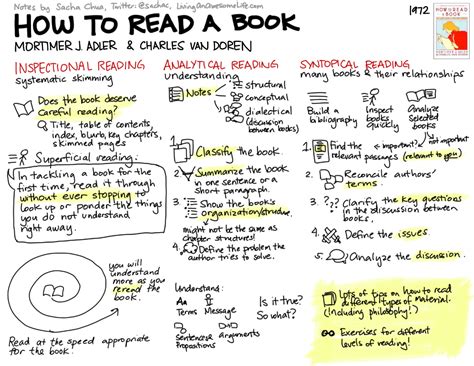 Notes by Sacha Chua, Twitter: @sachac, LivingAnAwesomeLife.com
HOW TO READ A BOOK
MORTIMER J. ADLER & CHARLES VAN DOREN
1972
HOW TO READ
A BOOK
INSPECTIONAL READING
systematic skimming
Does the book deserve
careful reading?
Title, table of contents,
index, blurb, key chapters,
skimmed pages
Superficial reading:
In tackling a book for the
first time, read it through
without ever stopping to
look up or ponder the things
you do not understand
right away.
you will
understand
more as you
reread the
book.
Read at the speed appropriate
for the book.
ANALYTICAL READING
understanding
Notes
structural
conceptual
dialectical
(discussion between books)
1. Classify the book.
2. Summarize the book
in one sentence or a
short paragraph.
3. Show the book's
organization/structure.
might not be the same as
chapter structures!
4. Define the problem the
author tries to solve.
Understand:
Aa
Terms
Message
Sentences
Propositions
arguments
Is it true?
So what?
SYNTOPICAL READING
many books & their relationships
Build a
bibliography
Inspect
books
quickly
Analyze
selected
books
1. Find the
relevant passages
important?
not important
(relevant to you)
2. Reconcile authors'
terms.
3. Clarify the key questions
in the discussion between
books.
4. Define the issues.
5. Analyze the discussion.
Lots of tips on how to read
different types of material.
(Including philosophy!)
Exercises for different
levels of reading!